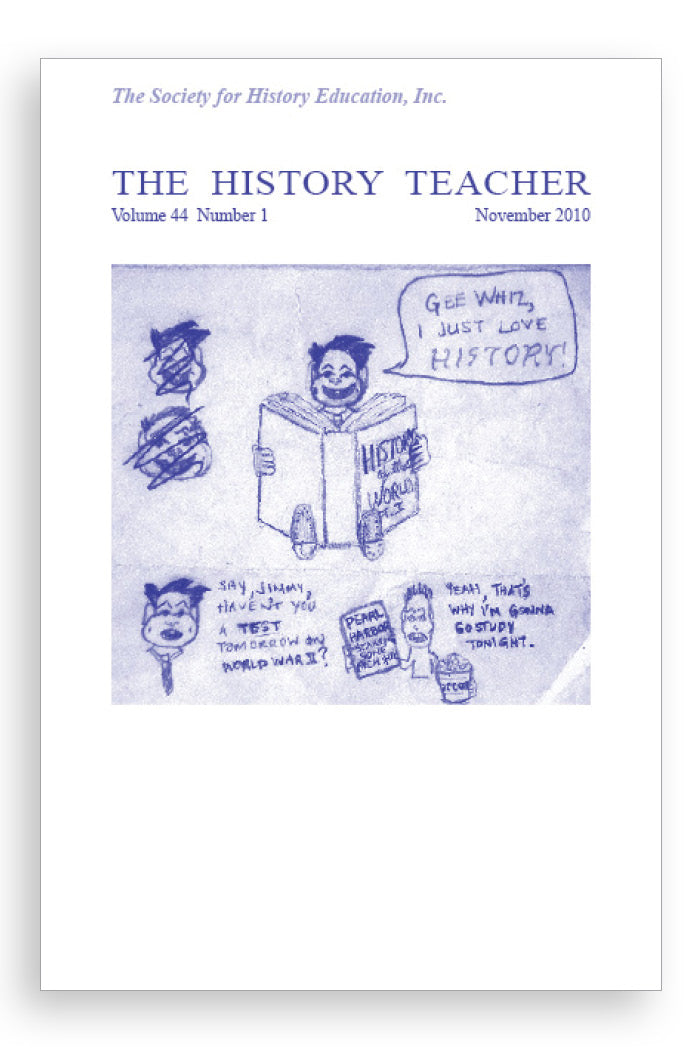 The Society for History Education, Inc.
THE HISTORY TEACHER
Volume 44 Number 1
November 2010
GEE WHIZ,
I JUST LOVE
HISTORY!
HISTORY
of the
WORLD
PT. I
SAY, JIMMY,
HAVEN'T YOU
A TEST
TOMORROW ON
WORLD WAR II?
PEARL
HARBOR
STARRING
SOME
YEAH, THAT'S
WHY I'M GONNA
GO STUDY
TONIGHT.